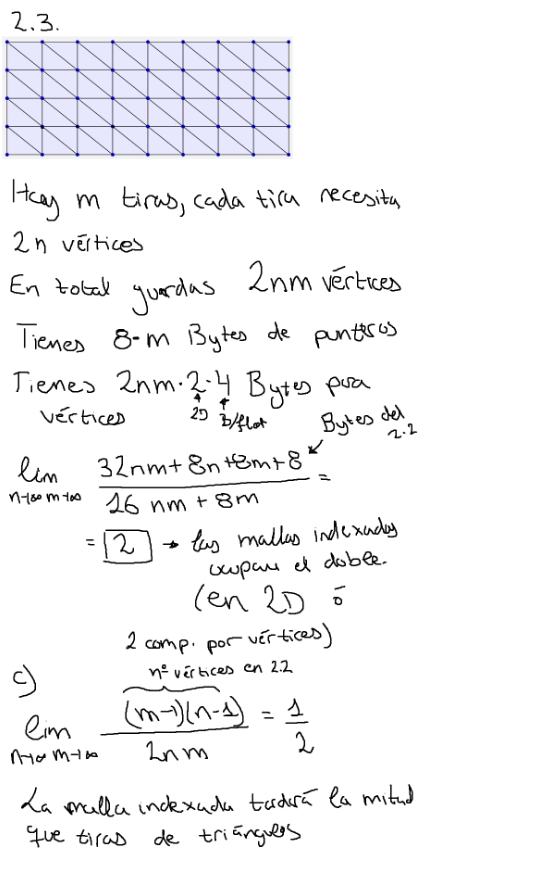 2.3.
Hay m tiras, cada tira necesita
2n vértices
En total guardas 2nm vértices
Tienes 8·m Bytes de punteros
Tienes 2nm·2·4 Bytes para
vértices 2D B/flot Bytes del 2.2
lim n→∞ m→∞ (32nm+8n+8m+8)/(16nm+8m) =
= 2 → las mallas indexadas
ocupan el doble.
(en 2D ó
2 comp. por vértices)
nº vértices en 2.2
c)
lim n→∞ m→∞ (m-1)(n-1)/2nm = 1/2
La malla indexada tardará la mitad
que tiras de triángulos